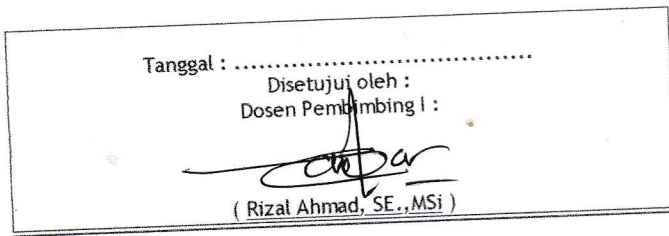 Tanggal : ......................................
Disetujui oleh :
Dosen Pembimbing I :
( Rizal Ahmad, SE.,MSi )